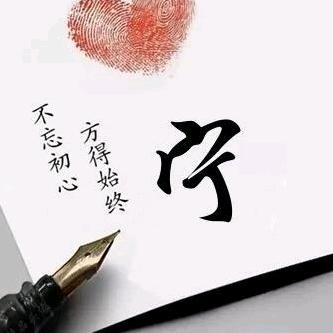 不忘初心
方得始终
宁